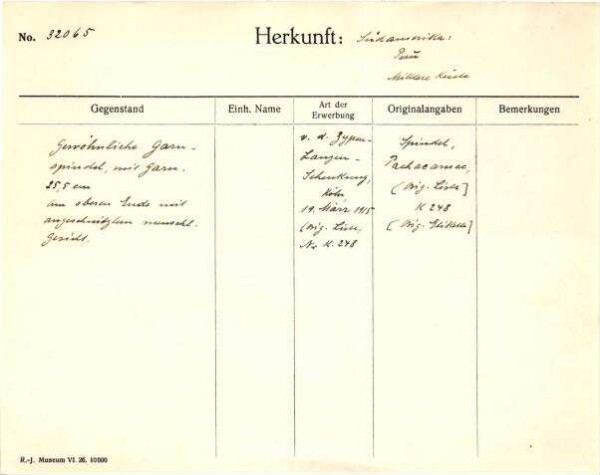 No. 32065
Herkunft: Südamerika:
Peru
Mittlere Küste
Gegenstand
Einh. Name
Art der
Erwerbung
Originalangaben
Bemerkungen
Gewöhnliche Garn-
spindel, mit Garn.
25,5 cm
Am oberen Ende mit
angeschnitztem menschl.
Gesicht.
v. d. Zypen-
Langen-
Schenkung,
Köln
19. März 1915
(Orig. Liste,
Nr. K. 248
Spindel,
Pachacamac,
(Orig. Liste]
K 248
[Orig. Etikette]
R.-J. Museum VI. 26. 10000